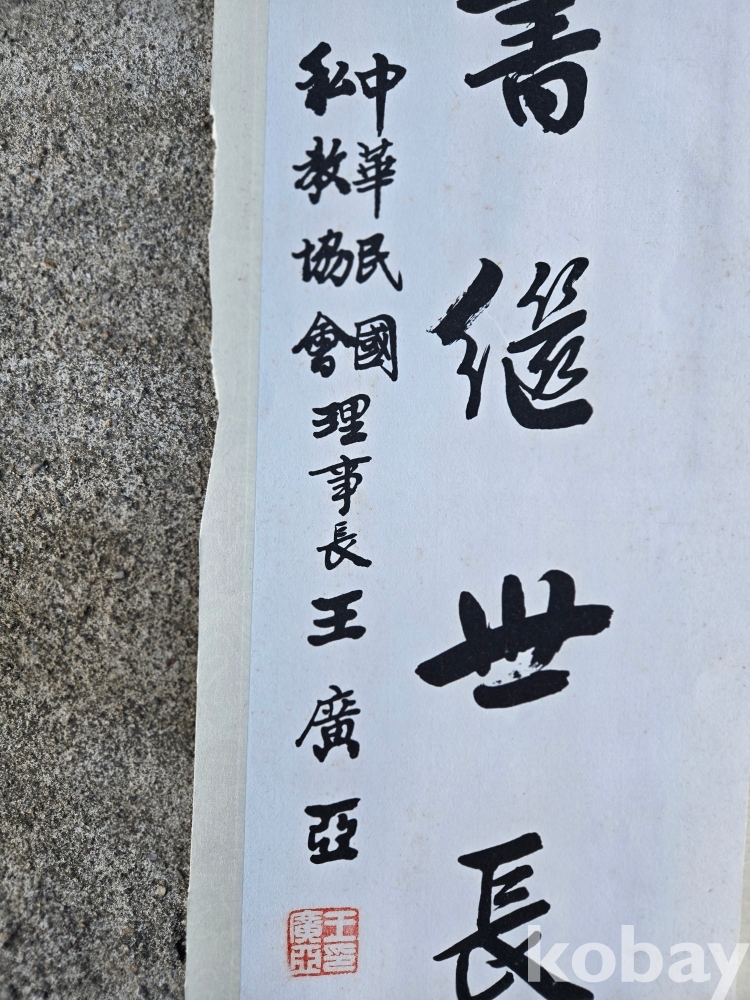 書繼世長
中華民國
私教協會
理事長王廣亞
王印
廣亞
kobay